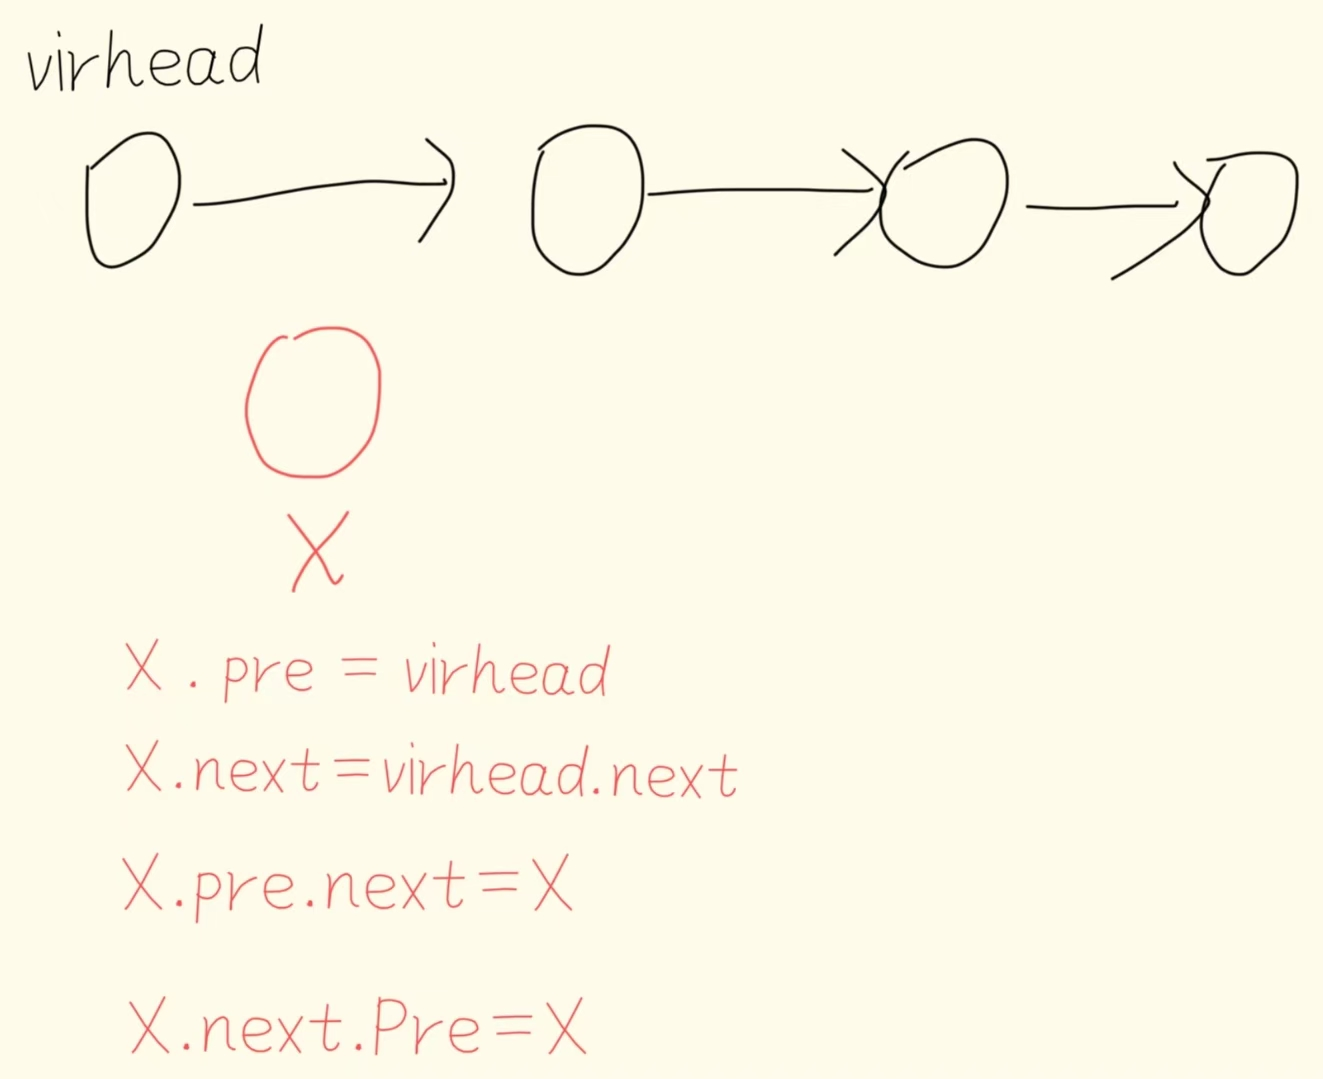 virhead
X
X . pre = virhead
X.next=virhead.next
X.pre.next=X
X.next.Pre=X